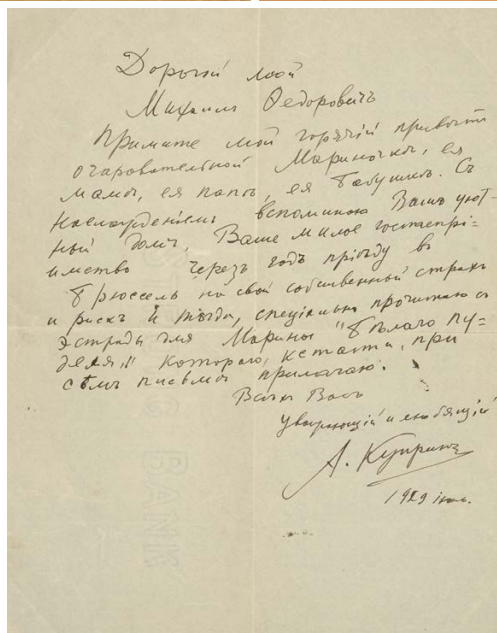 Дорогой мой
Михаилъ Ѳедоровичъ
Примите мой горячій привѣтъ
очаровательной Мариночкѣ, ея
мамѣ, ея папѣ, ея бабушкѣ. Съ
наслажденіемъ вспоминаю Вашъ уют-
ный домъ, Ваше милое гостепрі=
имство Черезъ годъ пріѣду въ
Брюссель на свой собственный страхъ
и рискъ и тогда, спеціально прочитаю съ
эстрады для Марины "Бѣлаго пу=
деля", котораго, кстати, при
семъ письмѣ прилагаю.
Всѣхъ Васъ
уважающій и любящій
А. Купринъ
1929
BANK